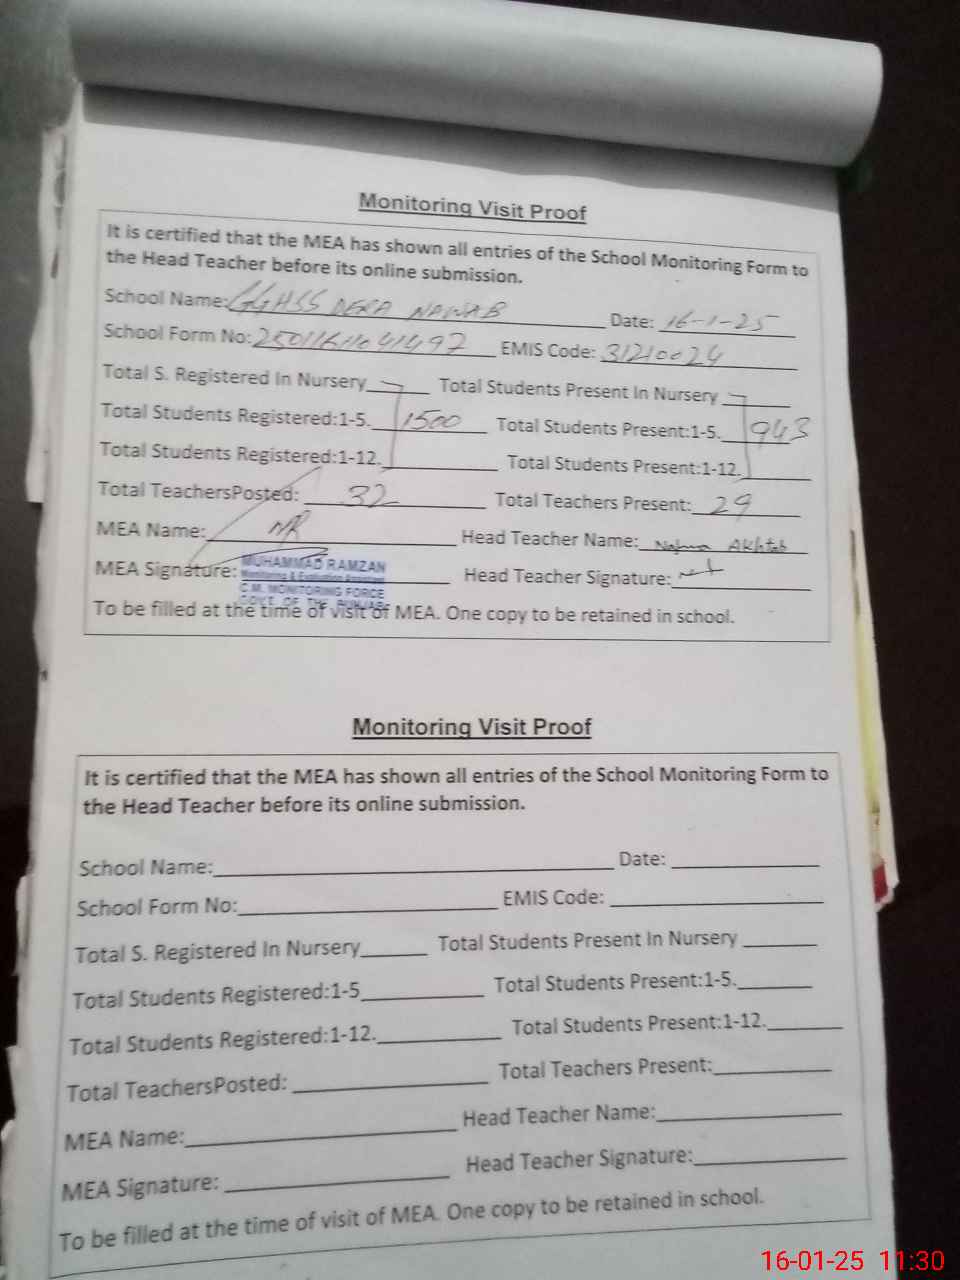 Monitoring Visit Proof
It is certified that the MEA has shown all entries of the School Monitoring Form to
the Head Teacher before its online submission.
School Name: GGHSS DERA NAWAB Date: 16-1-25
School Form No: EMIS Code: 31210024
Total S. Registered In Nursery Total Students Present In Nursery
Total Students Registered:1-5. 1500 Total Students Present:1-5. 943
Total Students Registered:1-12. Total Students Present:1-12.
Total TeachersPosted: 32 Total Teachers Present: 29
MEA Name: MR Head Teacher Name: Najma Akhtab
MEA Signature: Head Teacher Signature:
MUHAMMAD RAMZAN
Monitoring & Evaluation Assistant
C.M. MONITORING FORCE
OF THE PUNJAB
To be filled at the time of visit of MEA. One copy to be retained in school.
Monitoring Visit Proof
It is certified that the MEA has shown all entries of the School Monitoring Form to
the Head Teacher before its online submission.
School Name: Date:
School Form No: EMIS Code:
Total S. Registered In Nursery Total Students Present In Nursery
Total Students Registered:1-5 Total Students Present:1-5.
Total Students Registered:1-12. Total Students Present:1-12.
Total TeachersPosted: Total Teachers Present:
MEA Name: Head Teacher Name:
MEA Signature: Head Teacher Signature:
To be filled at the time of visit of MEA. One copy to be retained in school.
16-01-25 11:30